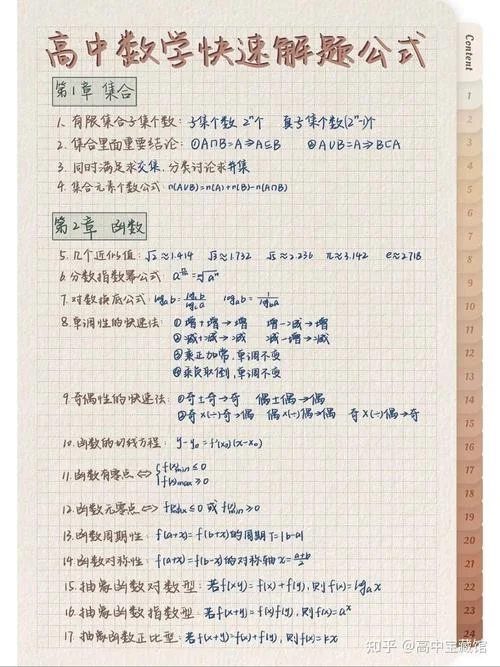 高中数学快速解题公式
Content
第1章 集合
1. 有限集合子集个数：子集个数 2ⁿ个 真子集个数(2ⁿ-1)个
2. 集合里面重要结论：①A∩B=A⇒A⊆B ②A∪B=A⇒B⊆A
3. 同时满足求交集，分类讨论求并集
4. 集合元素个数公式：n(A∪B)=n(A)+n(B)-n(A∩B)
第2章 函数
5. 几个近似值：√2≈1.414 √3≈1.732 √5≈2.236 π≈3.142 e≈2.718
6. 分数指数幂公式：
7. 对数换底公式：
8. 单调性的快速法：①增+增→增 增-减→增
②减+减→减 减-增→减
③乘正加常，单调不变
④乘负取倒，单调不变
9. 奇偶性的快速法：①奇±奇→奇 偶±偶→偶
②奇×(÷)奇→偶 偶×(÷)偶→偶 奇×(÷)偶→奇
10. 函数的切线方程：y-y₀=f'(x₀)(x-x₀)
11. 函数有零点⇔{f(x)min≤0
f(x)max≥0
12. 函数无零点⇔f(x)max≤0 或 f(x)min≥0
13. 函数周期性：f(a+x)=f(b+x)的周期T=|b-a|
14. 函数对称性：f(a+x)=f(b-x)的对称轴x=(a+b)/2
15. 抽象函数对数型：若f(xy)=f(x)+f(y)，则f(x)=logₐx
16. 抽象函数指数型：若f(x+y)=f(x)f(y)，则f(x)=aˣ
17. 抽象函数正比型：若f(x+y)=f(x)+f(y)，则f(x)=kx
1
2
3
4
5
6
7
8
9
10
11
12
13
14
15
16
17
18
19
20
21
22
23
24
知乎 @高中宝藏馆